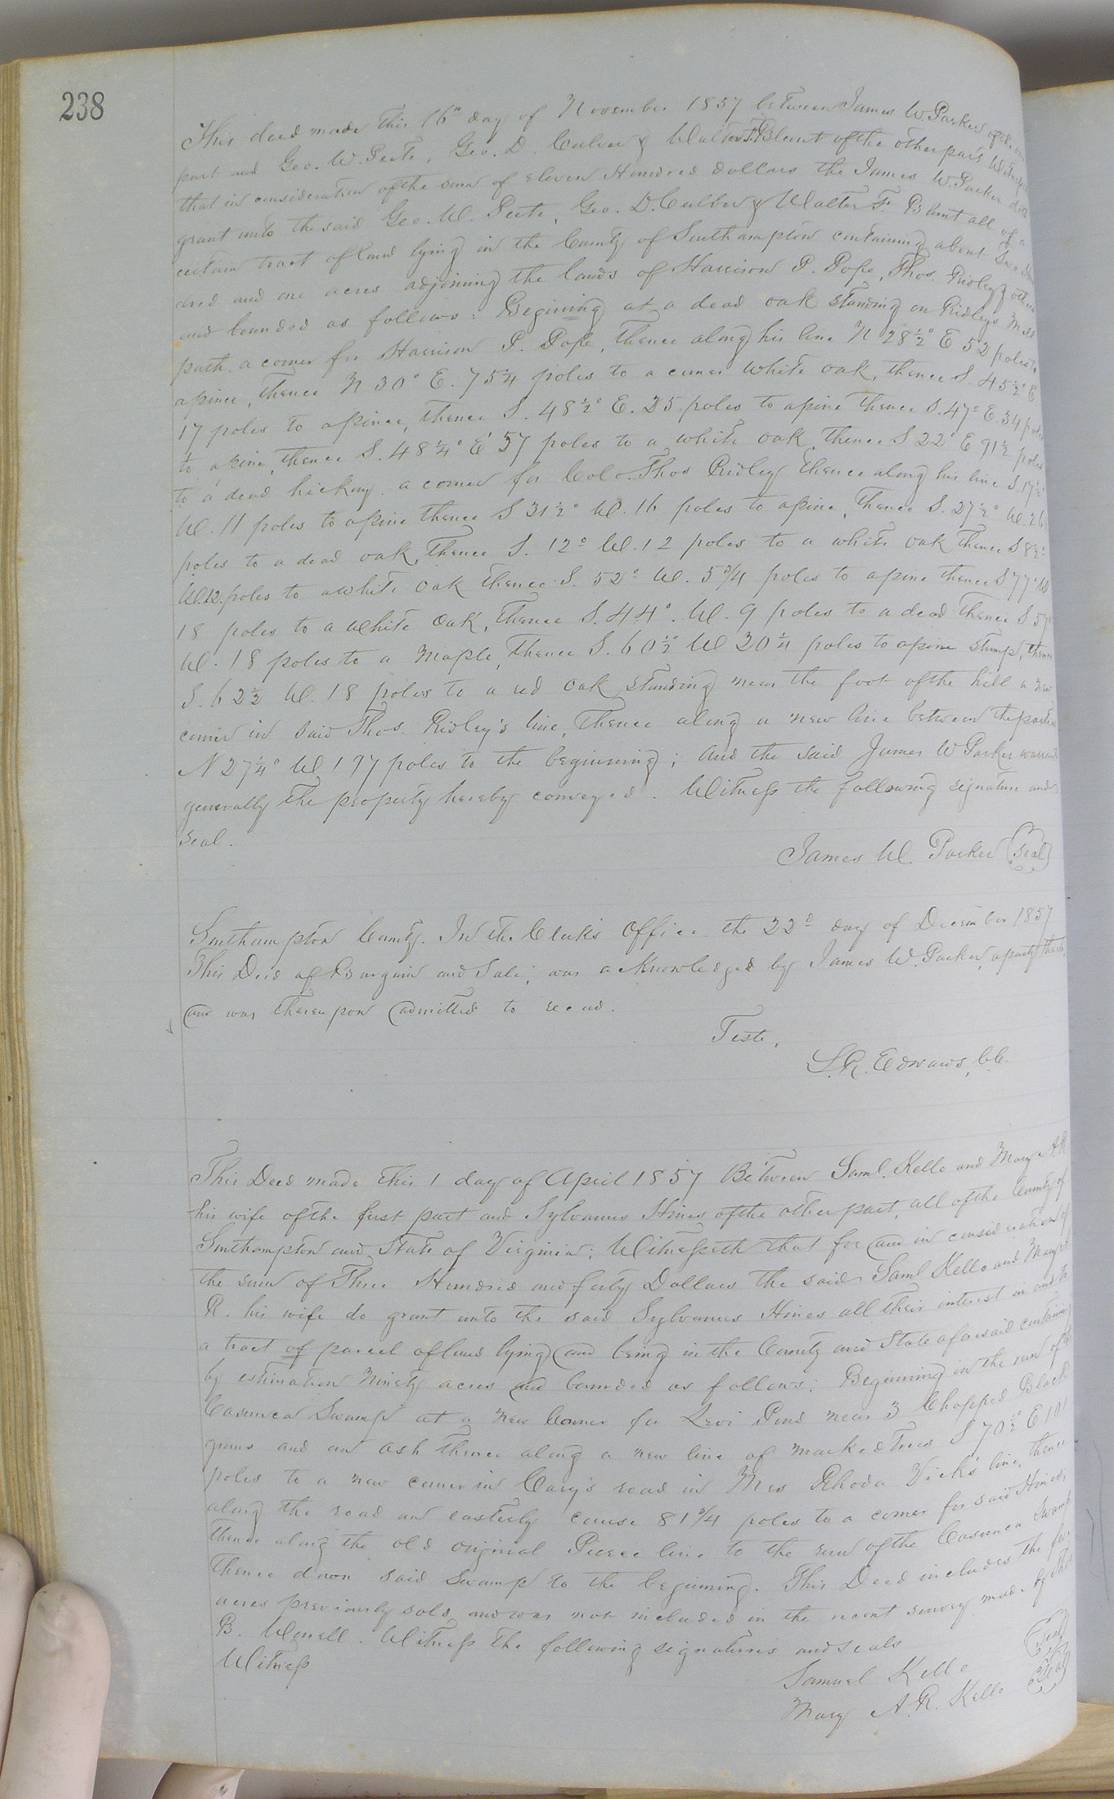 238
This deed made this 16th day of November 1857 between James W. Parker of the one
part and Geo. W. Peete, Geo. D. Culver & Walter F. Blunt of the other part, Witnesseth
that in consideration of the sum of eleven Hundred dollars the James W. Parker doth
grant unto the said Geo. W. Peete, Geo. D. Culver & Walter F. Blunt all of a
certain tract of land lying in the County of Southampton containing about
and one acres adjoining the lands of Harrison P. Pope, Thos. Ridley & others
and bounded as follows: Begining at a dead oak standing on Ridley's Mill
path, a corner for Harrison P. Pope, thence along his line N 28½° E 52 poles to
a pine, thence N 30° E. 75¼ poles to a corner white oak, thence S. 45½° E
17 poles to a pine, thence S. 48½° E. 25 poles to a pine thence S. 47° E. 34 poles
to a pine, thence S. 48¼° E 57 poles to a white oak, thence S 22° E 91½ poles
to a dead hickory, a corner for Colo. Thos Ridley thence along his line S. 17½°
W. 11 poles to a pine thence S 31½° W. 16 poles to a pine, thence S. 27½° W. 26
poles to a dead oak, thence S. 12° W. 12 poles to a white oak thence S 8½°
W. 12. poles to a white oak thence S. 52° W. 5¾ poles to a pine thence S 77° W
18 poles to a white oak, thence S. 44°. W. 9 poles to a dead thence S 57°
W. 18 poles to a Maple, thence S. 60½° W 20¼ poles to a pine stump, thence
S. 62½ W. 18 poles to a red oak standing near the foot of the hill a new
corner in said Thos. Ridley's line, thence along a new line between the parties
N 27¼° W 197 poles to the beginning; and the said James W Parker warrants
generally the property hereby conveyed. Witness the following signature and
seal.
James W. Parker (Seal)
Southampton County. In the Clerk's Office the 22d day of December 1857
This Deed of Bargain and Sale, was acknowledged by James W. Parker, a party thereto
and was thereupon admitted to record.
Teste,
L.R. Edwards, C.C.
This Deed made this 1 day of April 1857 Between Saml. Kello and Mary A.R.
his wife of the first part and Sylvanus Hines of the other part, all of the County of
Southampton and State of Virginia: Witnesseth that for and in consideration of
the sum of Three Hundred and forty Dollars the said Saml Kello and Mary A.
R. his wife do grant unto the said Sylvanus Hines all their interest in and to
a tract of parcel of land lying and being in the County and State aforesaid containing
by estimation Ninety acres and bounded as follows: Beginning in the run of the
Swamp at a new Corner for Levi Pond near 3 Chopped Black
gums and an ash thence along a new line of marked trees S 70½° E 101
poles to a new corner in Cary's road in Mrs Rhoda Vick's line, thence
along the road an easterly course 81¾ poles to a corner for said Hines,
thence along the old original Pierce line to the run of the Swamp
thence down said Swamp to the beginning. This Deed includes the
acres previously sold and was not included in the recent survey made by
B. Worrell. Witness the following signatures and seals
Witness
Samuel Kello (Seal)
Mary A. R. Kello (Seal)